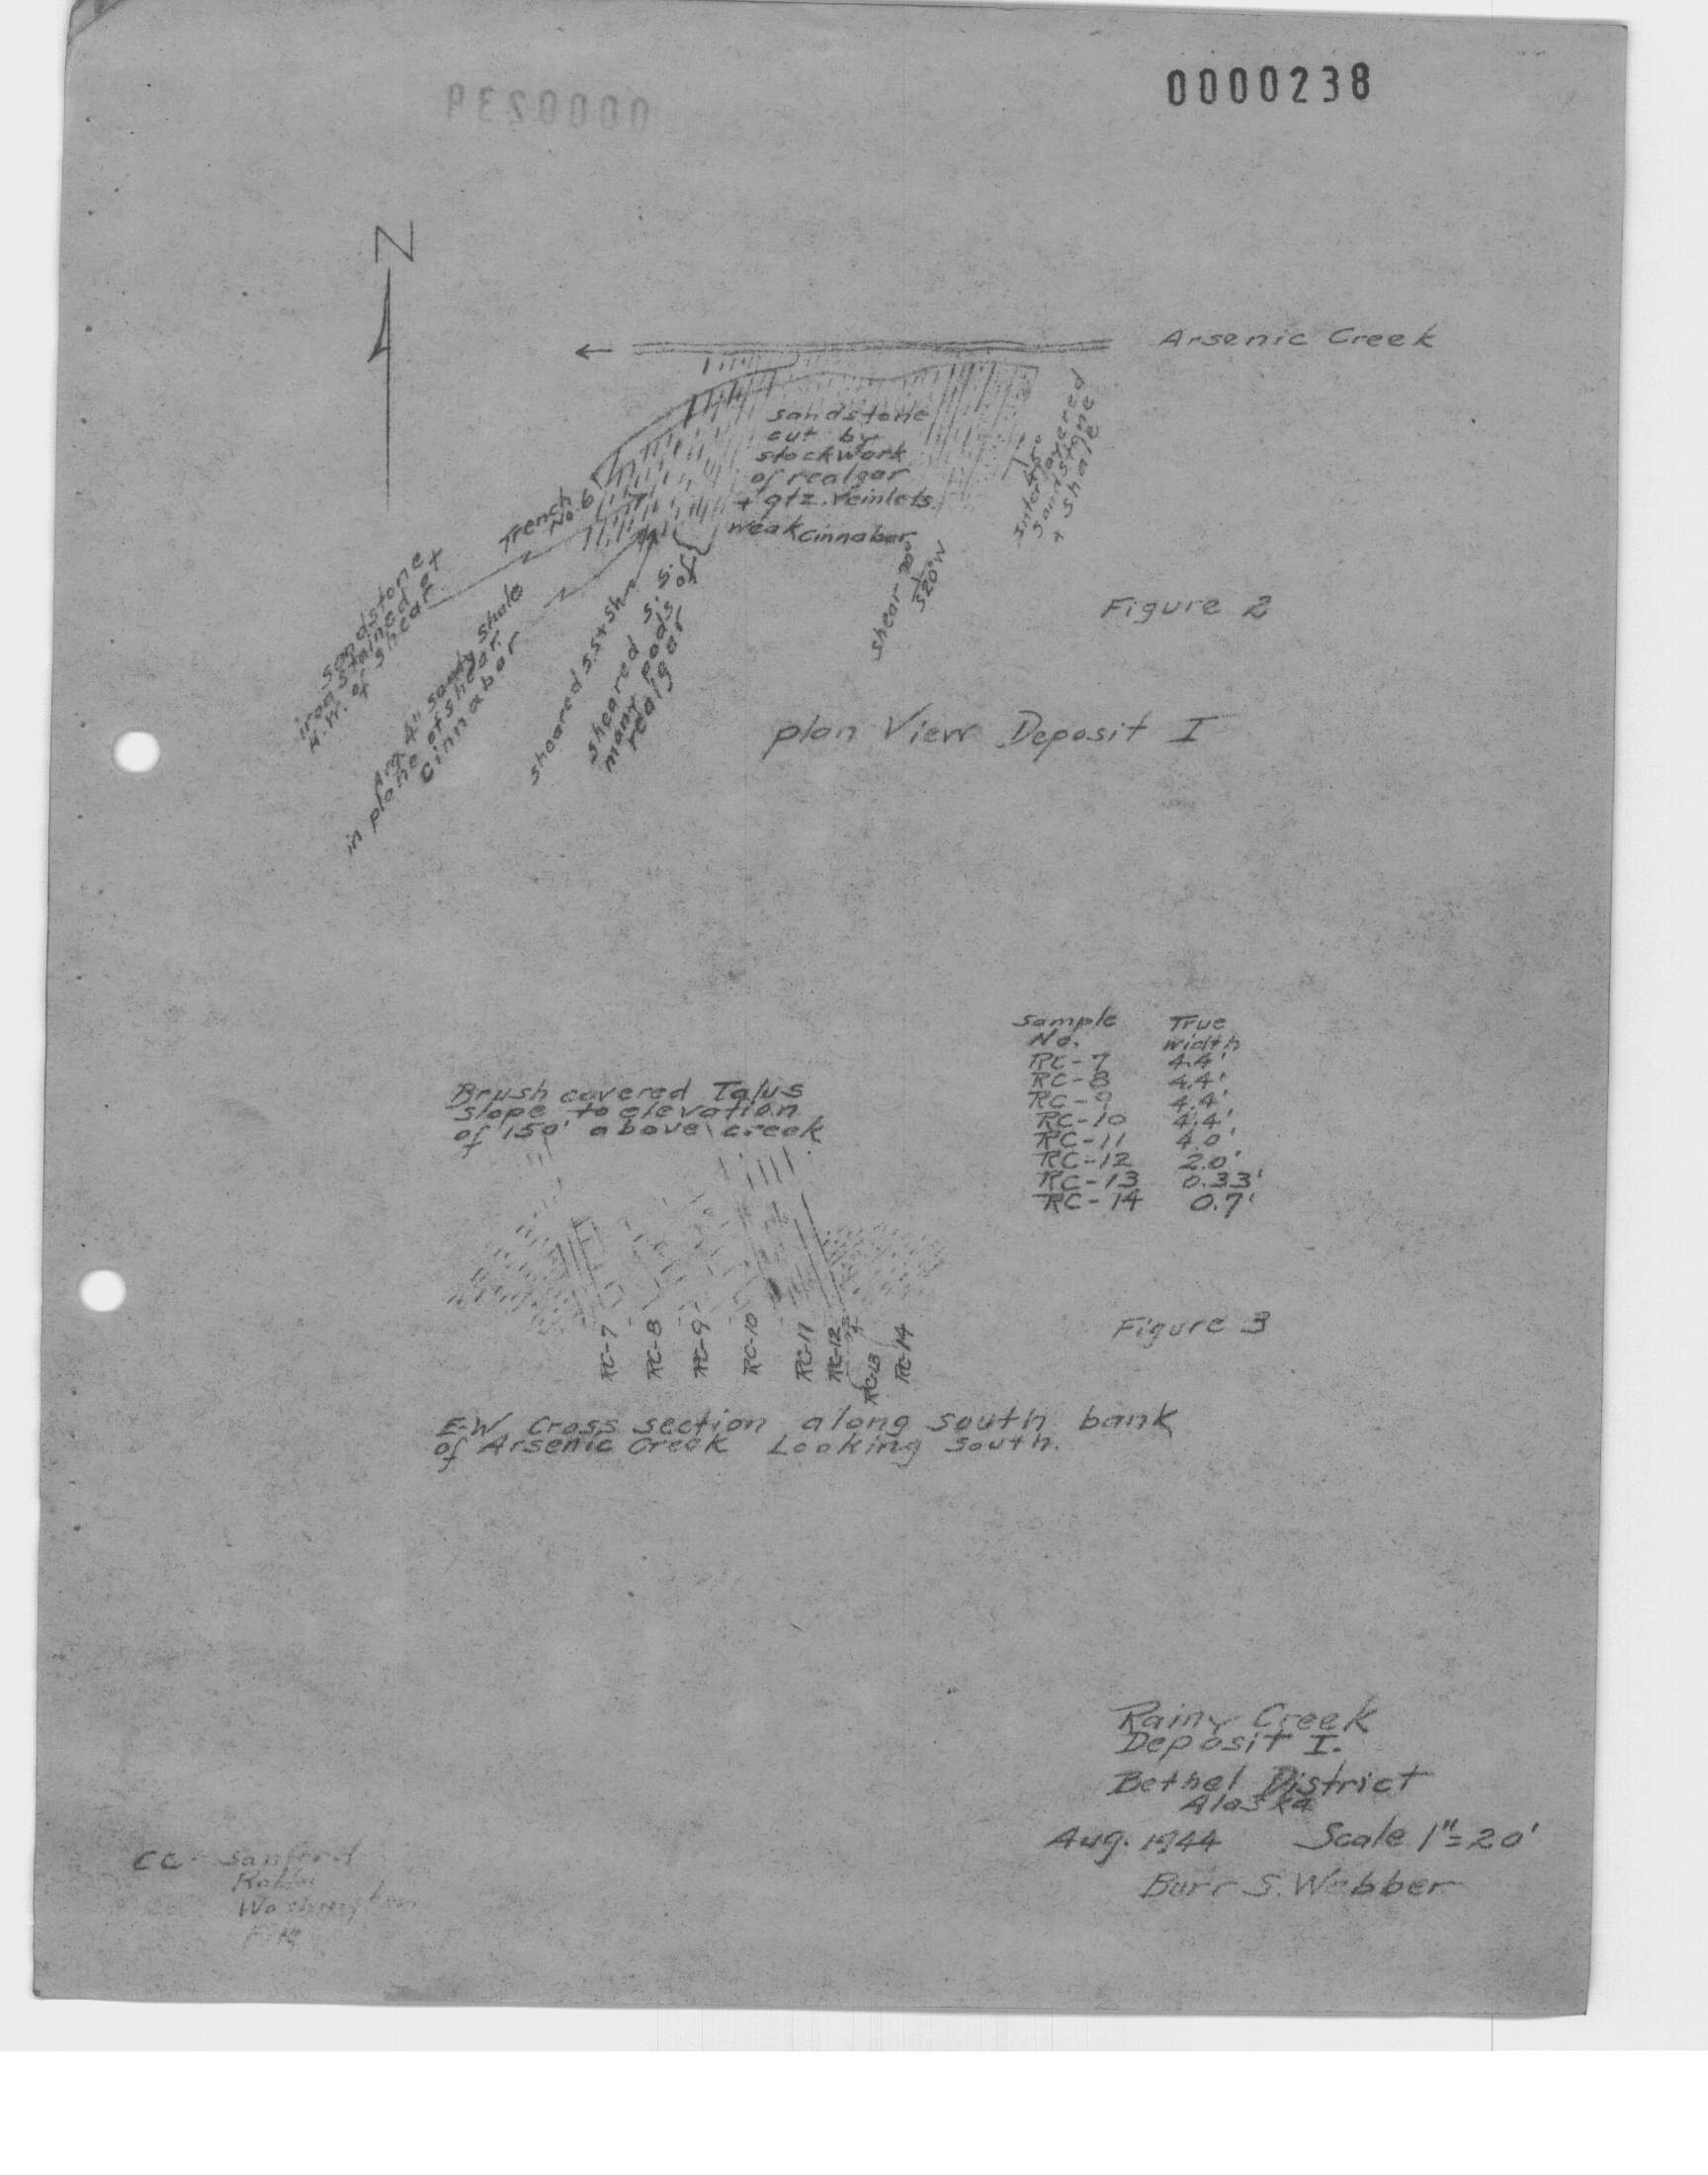 0000238
0000239
N
Arsenic Creek
sandstone
cut by
stockwork
of realgar
+ qtz. veinlets.
weak cinnabar
Trench
No. 6
sandstone +
iron stained at
H.W. of shear
4" sandy shale
in plane of shear.
Cinnabar
sheared s.s + sh
sheared s.s.
many pods of
realgar
shear 70°
S20°W
45°
Interlayered
sandstone
+ shale
Figure 2
plan View Deposit I
Sample True
No. width
RC-7 4.4'
RC-8 4.4'
RC-9 4.4'
RC-10 4.4'
RC-11 4.0'
RC-12 2.0'
RC-13 0.33'
RC-14 0.7'
Brush covered Talus
slope to elevation
of 150' above creek
RC-7 RC-8 RC-9 RC-10 RC-11 RC-12 RC-13 RC-14
Figure 3
E-W Cross section along south bank
of Arsenic Creek Looking South.
Rainy Creek
Deposit I.
Bethel District
Alaska
Aug. 1944 Scale 1"=20'
Burr S. Webber
cc Sanford
Washington